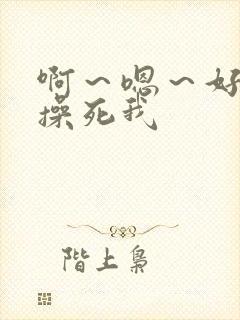 啊~嗯~好
操死我
階上梟